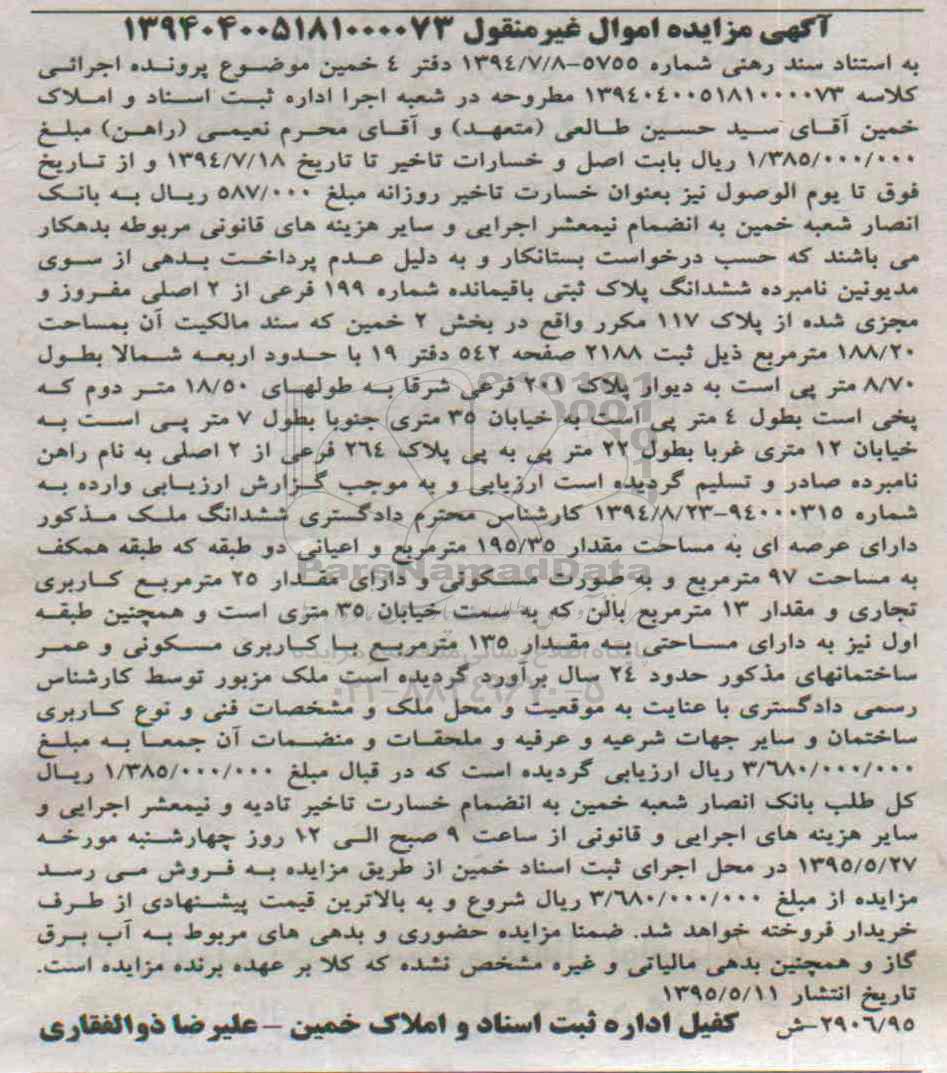 آگهی مزایده اموال غیرمنقول ۱۳۹۴۰۴۰۰۵۱۸۱۰۰۰۰۷۳
به استناد سند رهنی شماره ۵۷۵۵-۱۳۹٤/۷/۸ دفتر ٤ خمین موضوع پرونده اجرائی
کلاسه ۱۳۹٤۰٤۰۰۵۱۸۱۰۰۰۰۷۳ مطروحه در شعبه اجرا اداره ثبت اسناد و املاک
خمین آقای سید حسین طالعی (متعهد) و آقای محرم نعیمی (راهن) مبلغ
۱/۳۸۵/۰۰۰/۰۰۰ ریال بابت اصل و خسارات تاخیر تا تاریخ ۱۳۹٤/۷/۱۸ و از تاریخ
فوق تا یوم الوصول نیز بعنوان خسارت تاخیر روزانه مبلغ ۵۸۷/۰۰۰ ریال به بانک
انصار شعبه خمین به انضمام نیمعشر اجرایی و سایر هزینه های قانونی مربوطه بدهکار
می باشند که حسب درخواست بستانکار و به دلیل عدم پرداخت بدهی از سوی
مدیونین نامبرده ششدانگ پلاک ثبتی باقیمانده شماره ۱۹۹ فرعی از ۲ اصلی مفروز و
مجزی شده از پلاک ۱۱۷ مکرر واقع در بخش ۲ خمین که سند مالکیت آن بمساحت
۱۸۸/۲۰ مترمربع ذیل ثبت ۲۱۸۸ صفحه ۵٤۲ دفتر ۱۹ با حدود اربعه شمالا بطول
۸/۷۰ متر پی است به دیوار پلاک ۲۰۱ فرعی شرقا به طولهای ۱۸/۵۰ متر دوم که
پخی است بطول ٤ متر پی است به خیابان ۳۵ متری جنوبا بطول ۷ متر پی است به
خیابان ۱۲ متری غربا بطول ۲۲ متر پی به پی پلاک ۲٦٤ فرعی از ۲ اصلی به نام راهن
نامبرده صادر و تسلیم گردیده است ارزیابی و به موجب گزارش ارزیابی وارده به
شماره ۹٤۰۰۰۳۱۵-۱۳۹٤/۸/۲۳ کارشناس محترم دادگستری ششدانگ ملک مذکور
دارای عرصه ای به مساحت مقدار ۱۹۵/۳۵ مترمربع و اعیانی دو طبقه که طبقه همکف
به مساحت ۹۷ مترمربع و به صورت مسکونی و دارای مقدار ۲۵ مترمربع کاربری
تجاری و مقدار ۱۳ مترمربع بالن که به سمت خیابان ۳۵ متری است و همچنین طبقه
اول نیز به دارای مساحتی به مقدار ۱۳۵ مترمربع با کاربری مسکونی و عمر
ساختمانهای مذکور حدود ۲٤ سال برآورد گردیده است ملک مزبور توسط کارشناس
رسمی دادگستری با عنایت به موقعیت و محل ملک و مشخصات فنی و نوع کاربری
ساختمان و سایر جهات شرعیه و عرفیه و ملحقات و منضمات آن جمعا به مبلغ
۳/٦۸۰/۰۰۰/۰۰۰ ریال ارزیابی گردیده است که در قبال مبلغ ۱/۳۸۵/۰۰۰/۰۰۰ ریال
کل طلب بانک انصار شعبه خمین به انضمام خسارت تاخیر تادیه و نیمعشر اجرایی و
سایر هزینه های اجرایی و قانونی از ساعت ۹ صبح الی ۱۲ روز چهارشنبه مورخه
۱۳۹۵/۵/۲۷ در محل اجرای ثبت اسناد خمین از طریق مزایده به فروش می رسد
مزایده از مبلغ ۳/٦۸۰/۰۰۰/۰۰۰ ریال شروع و به بالاترین قیمت پیشنهادی از طرف
خریدار فروخته خواهد شد. ضمنا مزایده حضوری و بدهی های مربوط به آب برق
گاز و همچنین بدهی مالیاتی و غیره مشخص نشده که کلا بر عهده برنده مزایده است.
تاریخ انتشار ۱۳۹۵/۵/۱۱
۲۹۰٦/۹۵-ش کفیل اداره ثبت اسناد و املاک خمین - علیرضا ذوالفقاری
ParsNamadData
۰۲۱-۸۸۳٤۹٦۷۰-۵